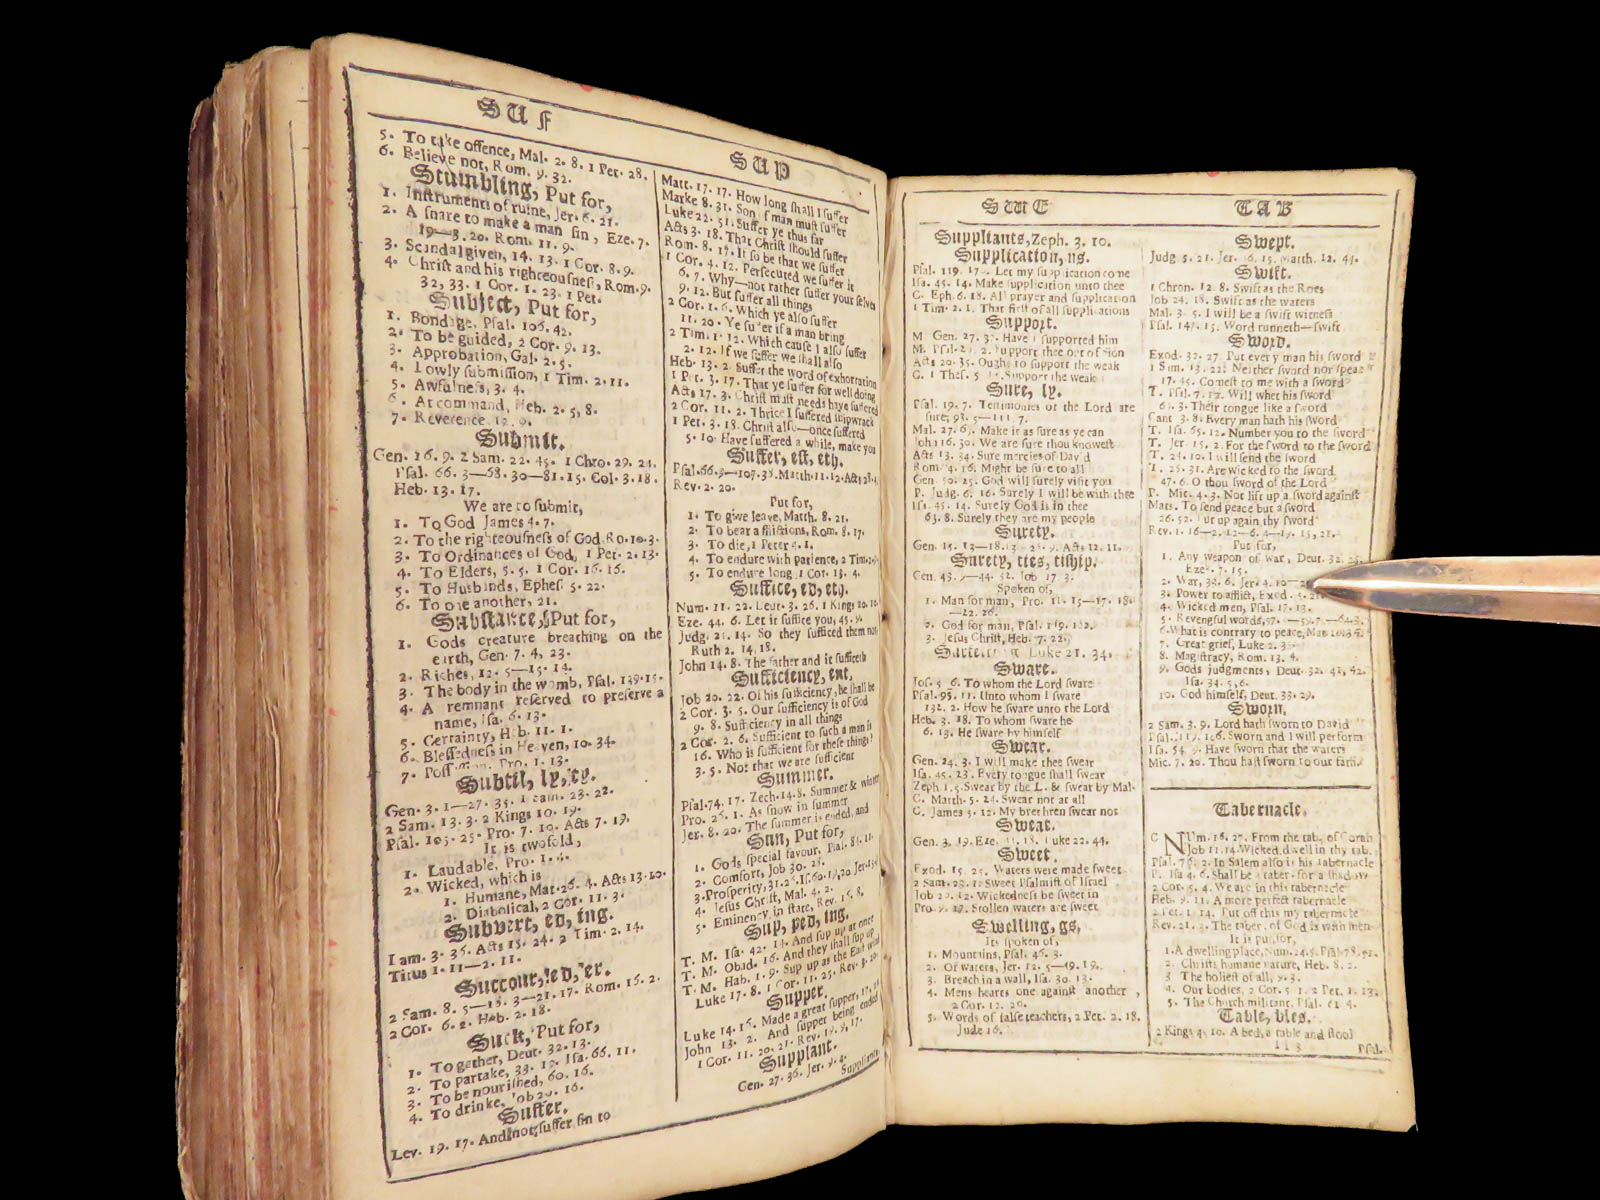 SUF
5. To take offence, Mal. 2. 8. 1 Pet. 28.
6. Believe not, Rom. 9. 32.
Stumbling, Put for,
1. Instruments of ruine, Jer. 6. 21.
2. A snare to make a man sin, Eze. 7.
19—3. 20. Rom. 11. 9.
3. Scandal given, 14. 13. 1 Cor. 8. 9.
4. Christ and his righteousness, Rom. 9.
32, 33. 1 Cor. 1. 23. 1 Pet.
Subject, Put for,
1. Bondage, Psal. 106. 42.
2. To be guided, 2 Cor. 9. 13.
3. Approbation, Gal. 2. 5.
4. Lowly submission, 1 Tim. 2. 11.
5. Awfulness, 3. 4.
6. At command, Heb. 2. 5, 8.
7. Reverence 12. 9.
Submit.
Gen. 16. 9. 2 Sam. 22. 45. 1 Chro. 29. 24.
Psal. 66. 3—68. 30—81. 15. Col. 3. 18.
Heb. 13. 17.
We are to submit,
1. To God James 4. 7.
2. To the righteousness of God Ro. 10. 3.
3. To Ordinances of God, 1 Pet. 2. 13.
4. To Elders, 5. 5. 1 Cor. 16. 16.
5. To Husbands, Ephes. 5. 22.
6. To one another, 21.
Substance, Put for,
1. Gods creature breathing on the
earth, Gen. 7. 4, 23.
2. Riches, 12. 5—15. 14.
3. The body in the womb, Psal. 139. 15.
4. A remnant reserved to preserve a
name, Isa. 6. 13.
5. Certainty, Heb. 11. 1.
6. Blessedness in Heaven, 10. 34.
7. Possession, Pro. 1. 13.
Subtil, ly, ty.
Gen. 3. 1—27. 35. 1 Sam. 23. 22.
2 Sam. 13. 3. 2 Kings 10. 19.
Psal. 105. 25. Pro. 7. 10. Acts 7. 19.
It is twofold,
1. Laudable, Pro. 1. 4.
2. Wicked, which is
1. Humane, Mat. 26. 4. Acts 13. 10.
2. Diabolical, 2 Cor. 11. 3.
Subvert, ed, ing.
Lam. 3. 36. Acts 15. 24. 2 Tim. 2. 14.
Titus 1. 11—2. 11.
Succour, ed, er.
2 Sam. 8. 5—18. 3—21. 17. Rom. 16. 2.
2 Cor. 6. 2. Heb. 2. 18.
Suck, Put for,
1. Together, Deut. 32. 13.
2. To partake, 33. 19. Isa. 66. 11.
3. To be nourished, 60. 16.
4. To drinke, Job 20. 16.
Suffer.
Lev. 19. 17. And not suffer sin to
SUP
Matt. 17. 17. How long shall I suffer
Marke 8. 31. Son of man must suffer
Luke 22. 51. Suffer ye thus far
Acts 3. 18. That Christ should suffer
Rom. 8. 17. If so be that we suffer
1 Cor. 4. 12. Persecuted we suffer it
6. 7. Why—not rather suffer your selves
9. 12. But suffer all things
2 Cor. 1. 6. Which ye also suffer
11. 20. Ye suffer if a man bring
2 Tim. 1. 12. Which cause I also suffer
2. 12. If we suffer we shall also
Heb. 13. 2. Suffer the word of exhortation
1 Pet. 3. 17. That ye suffer for well doing
Acts 17. 3. Christ must needs have suffered
2 Cor. 11. 2. Thrice I suffered shipwrack
1 Pet. 3. 18. Christ also—once suffered
5. 10. Have suffered a while, make you
Suffer, est, eth.
Psal. 66. 9—107. 38. Matth. 11. 12. Acts 28. 4.
Rev. 2. 20.
Put for,
1. To give leave, Matth. 8. 21.
2. To bear afflictions, Rom. 8. 17.
3. To die, 1 Peter 4. 1.
4. To endure with patience, 2 Tim.
5. To endure long 1 Cor. 13. 4.
Suffice, ed, eth.
Num. 11. 22. Leut. 3. 26. 1 Kings 20. 10.
Eze. 44. 6. Let it suffice you, 45. 9.
Judg. 21. 14. So they sufficed them not
Ruth 2. 14, 18.
John 14. 8. The father and it sufficeth
Sufficiency, ent,
Job 20. 22. Of his sufficiency, he shall be
2 Cor. 3. 5. Our sufficiency is of God
9. 8. Sufficiency in all things
2 Cor. 2. 6. Sufficient to such a man is
16. Who is sufficient for these things?
3. 5. Not that we are sufficient
Summer.
Psal. 74. 17. Zech. 14. 8. Summer & winter
Pro. 26. 1. As snow in summer
Jer. 8. 20. The summer is ended, and
Sun, Put for,
1. Gods special favour, Psal. 84. 11.
2. Comfort, Job 30. 28.
3. Prosperity, 31. 26. Is. 60. 19, 20. Jer. 15. 9
4. Jesus Christ, Mal. 4. 2.
5. Eminency in state, Rev. 16. 8.
Sup, ped, ing.
T. M. Isa. 42. 14. And sup up at once
T. M. Obad. 16. And they shall sup up
T. M. Hab. 1. 9. Sup up as the East wind
Luke 17. 8. 1 Cor. 11. 25. Rev. 3. 20.
Supper.
Luke 14. 16. Made a great supper, 17.
John 13. 2. And supper being ended
1 Cor. 11. 20, 21. Rev. 19. 9, 17.
Supplant.
Gen. 27. 36. Jer. 9. 4.
Suppliants
SWE
Suppliants, Zeph. 3. 10.
Supplication, ns.
Psal. 119. 170. Let my supplication come
Isa. 45. 14. Make supplication unto thee
G. Eph. 6. 18. All prayer and supplication
1 Tim. 2. 1. That first of all supplications
Support.
M Gen. 27. 37. Have I supported him
M. Psal. 20. 2. Support thee out of Sion
Acts 20. 35. Ought to support the weak
G. 1 Thes. 5. 14. Support the weak
Sure, ly.
Psal. 19. 7. Testimonies of the Lord are
sure, 93. 5—111. 7.
Mat. 27. 65. Make it as sure as ye can
John 16. 30. We are sure thou knowest
Acts 13. 34. Sure mercies of David
Rom. 4. 16. Might be sure to all
Gen. 50. 25. God will surely visit you
P. Judg. 6. 16. Surely I will be with thee
Isa. 45. 14. Surely God is in thee
63. 8. Surely they are my people
Surety.
Gen. 15. 13—18. 13—26. 9. Acts 12. 11.
Surety, ties, tiship.
Gen. 43. 9—44. 32. Job 17. 3.
Spoken of,
1. Man for man, Pro. 11. 15—17. 18.
—22. 26.
2. God for man, Psal. 119. 122.
3. Jesus Christ, Heb. 7. 22.
Luke 21. 34.
Sware.
Jos. 5. 6. To whom the Lord sware
Psal. 95. 11. Unto whom I sware
132. 2. How he sware unto the Lord
Heb. 3. 18. To whom sware he
6. 13. He sware by himself
Swear.
Gen. 24. 3. I will make thee swear
Isa. 45. 23. Every tongue shall swear
Zeph. 1. 5. Swear by the L. & swear by Mal.
C. Matth. 5. 24. Swear not at all
C. James 5. 12. My brethren swear not
Sweat.
Gen. 3. 19. Eze. 44. 18. Luke 22. 44.
Sweet.
Exod. 15. 25. Waters were made sweet
2 Sam. 23. 1. Sweet Psalmist of Israel
Job 20. 12. Wickedness be sweet in
Pro. 9. 17. Stollen waters are sweet
Swelling, gs,
It is spoken of,
1. Mountains, Psal. 46. 3.
2. Of waters, Jer. 12. 5—49. 19.
3. Breach in a wall, Isa. 30. 13.
4. Mens hearts one against another,
2 Cor. 12. 20.
5. Words of false teachers, 2 Pet. 2. 18.
Jude 16.
TAB
Swept.
Judg. 5. 21. Jer. 46. 15. Matth. 12. 44.
Swift.
1 Chron. 12. 8. Swift as the Roes
Job 24. 18. Swift as the waters
Mal. 3. 5. I will be a swift witness
Psal. 147. 15. Word runneth—swift
Sword.
Exod. 32. 27. Put every man his sword
1 Sam. 13. 22. Neither sword nor spear
17. 45. Comest to me with a sword
T. Psal. 7. 12. Will whet his sword
64. 3. Their tongue like a sword
Cant. 3. 8. Every man hath his sword
T. Isa. 65. 12. Number you to the sword
T. Jer. 15. 2. For the sword to the sword
T. 24. 10. I will send the sword
T. 25. 31. Are wicked to the sword
47. 6. O thou sword of the Lord
P. Mic. 4. 3. Not lift up a sword against
Mat. To send peace but a sword
26. 52. Put up again thy sword
Rev. 1. 16—2. 12—6. 4—19. 15, 21.
Put for,
1. Any weapon of war, Deut. 32. 25.
Eze. 7. 15.
2. War, 32. 6. Jer. 4. 10—
3. Power to afflict, Exod. 5. 21.
4. Wicked men, Psal. 17. 13.
5. Revengful words, 57. 4—59. 7—64. 3.
6. What is contrary to peace, Mat. 10. 34.
7. Great grief, Luke 2. 3
8. Magistracy, Rom. 13. 4.
9. Gods judgments, Deut. 32. 41, 42.
Isa. 34. 5, 6.
10. God himself, Deut. 33. 29.
Sworn.
2 Sam. 3. 9. Lord hath sworn to David
Psal. 119. 106. Sworn and I will perform
Isa. 54. 9. Have sworn that the waters
Mic. 7. 20. Thou hast sworn to our fath.
Tabernacle.
C NUm. 16. 27. From the tab. of Corah
Job 11. 14. Wicked, dwell in thy tab.
Psal. 76. 2. In Salem also is his tabernacle
P. Isa. 4. 6. Shall be a taber. for a shadow
2 Cor. 5. 4. We are in this tabernacle
Heb. 9. 11. A more perfect tabernacle
2 Pet. 1. 14. Put off this my tabernacle
Rev. 21. 3. The taber. of God is with men
It is put for,
1. A dwelling place, Num. 24. 5. Psal. 78. 52.
2. Christs humane nature, Heb. 8. 2.
3. The holiest of all, 9. 3.
4. Our bodies, 2 Cor. 5. 1. 2 Pet. 1. 13.
5. The Church militant, Psal. 61. 4.
Table, bles.
2 Kings 4. 10. A bed, a table and stool
Psal.